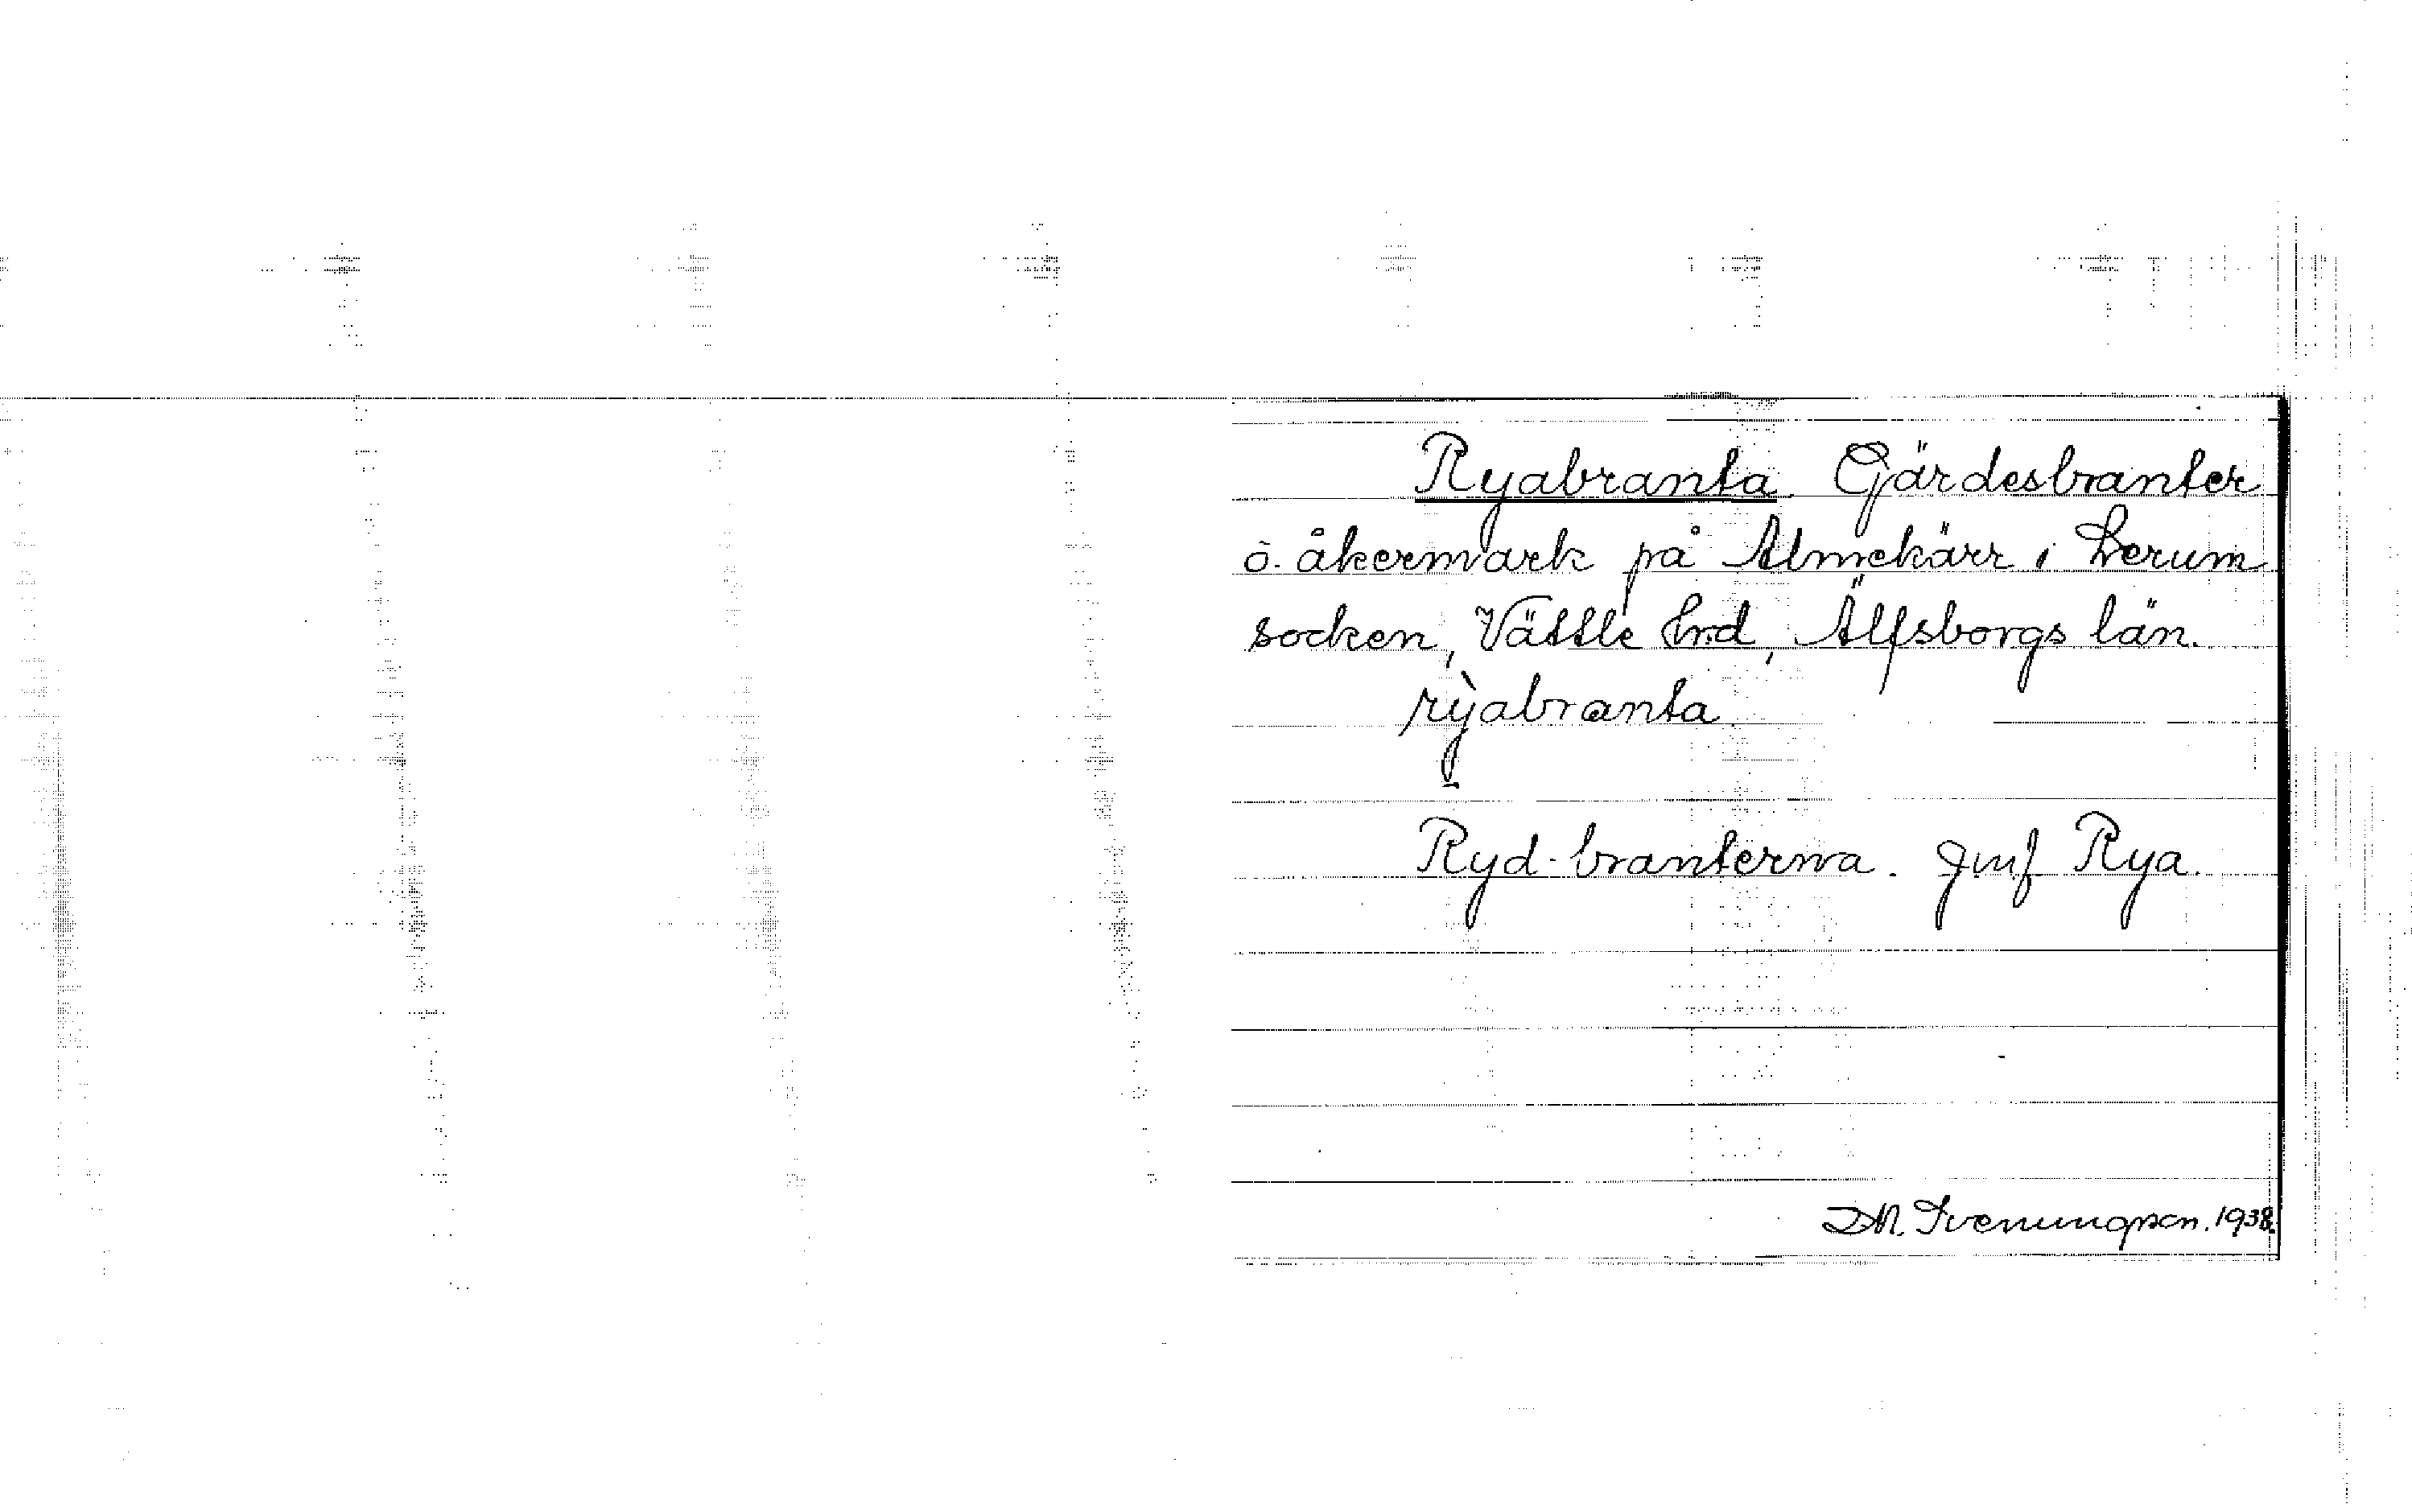 Ryabranta. Gärdesbranter
o. åkermark på Almekärr i Lerum
socken, Vättle hrd, Älfsborgs län.
rỳabranta
Ryd-branterna. Jmf Rya.
D.M. Svenungson. 1938.